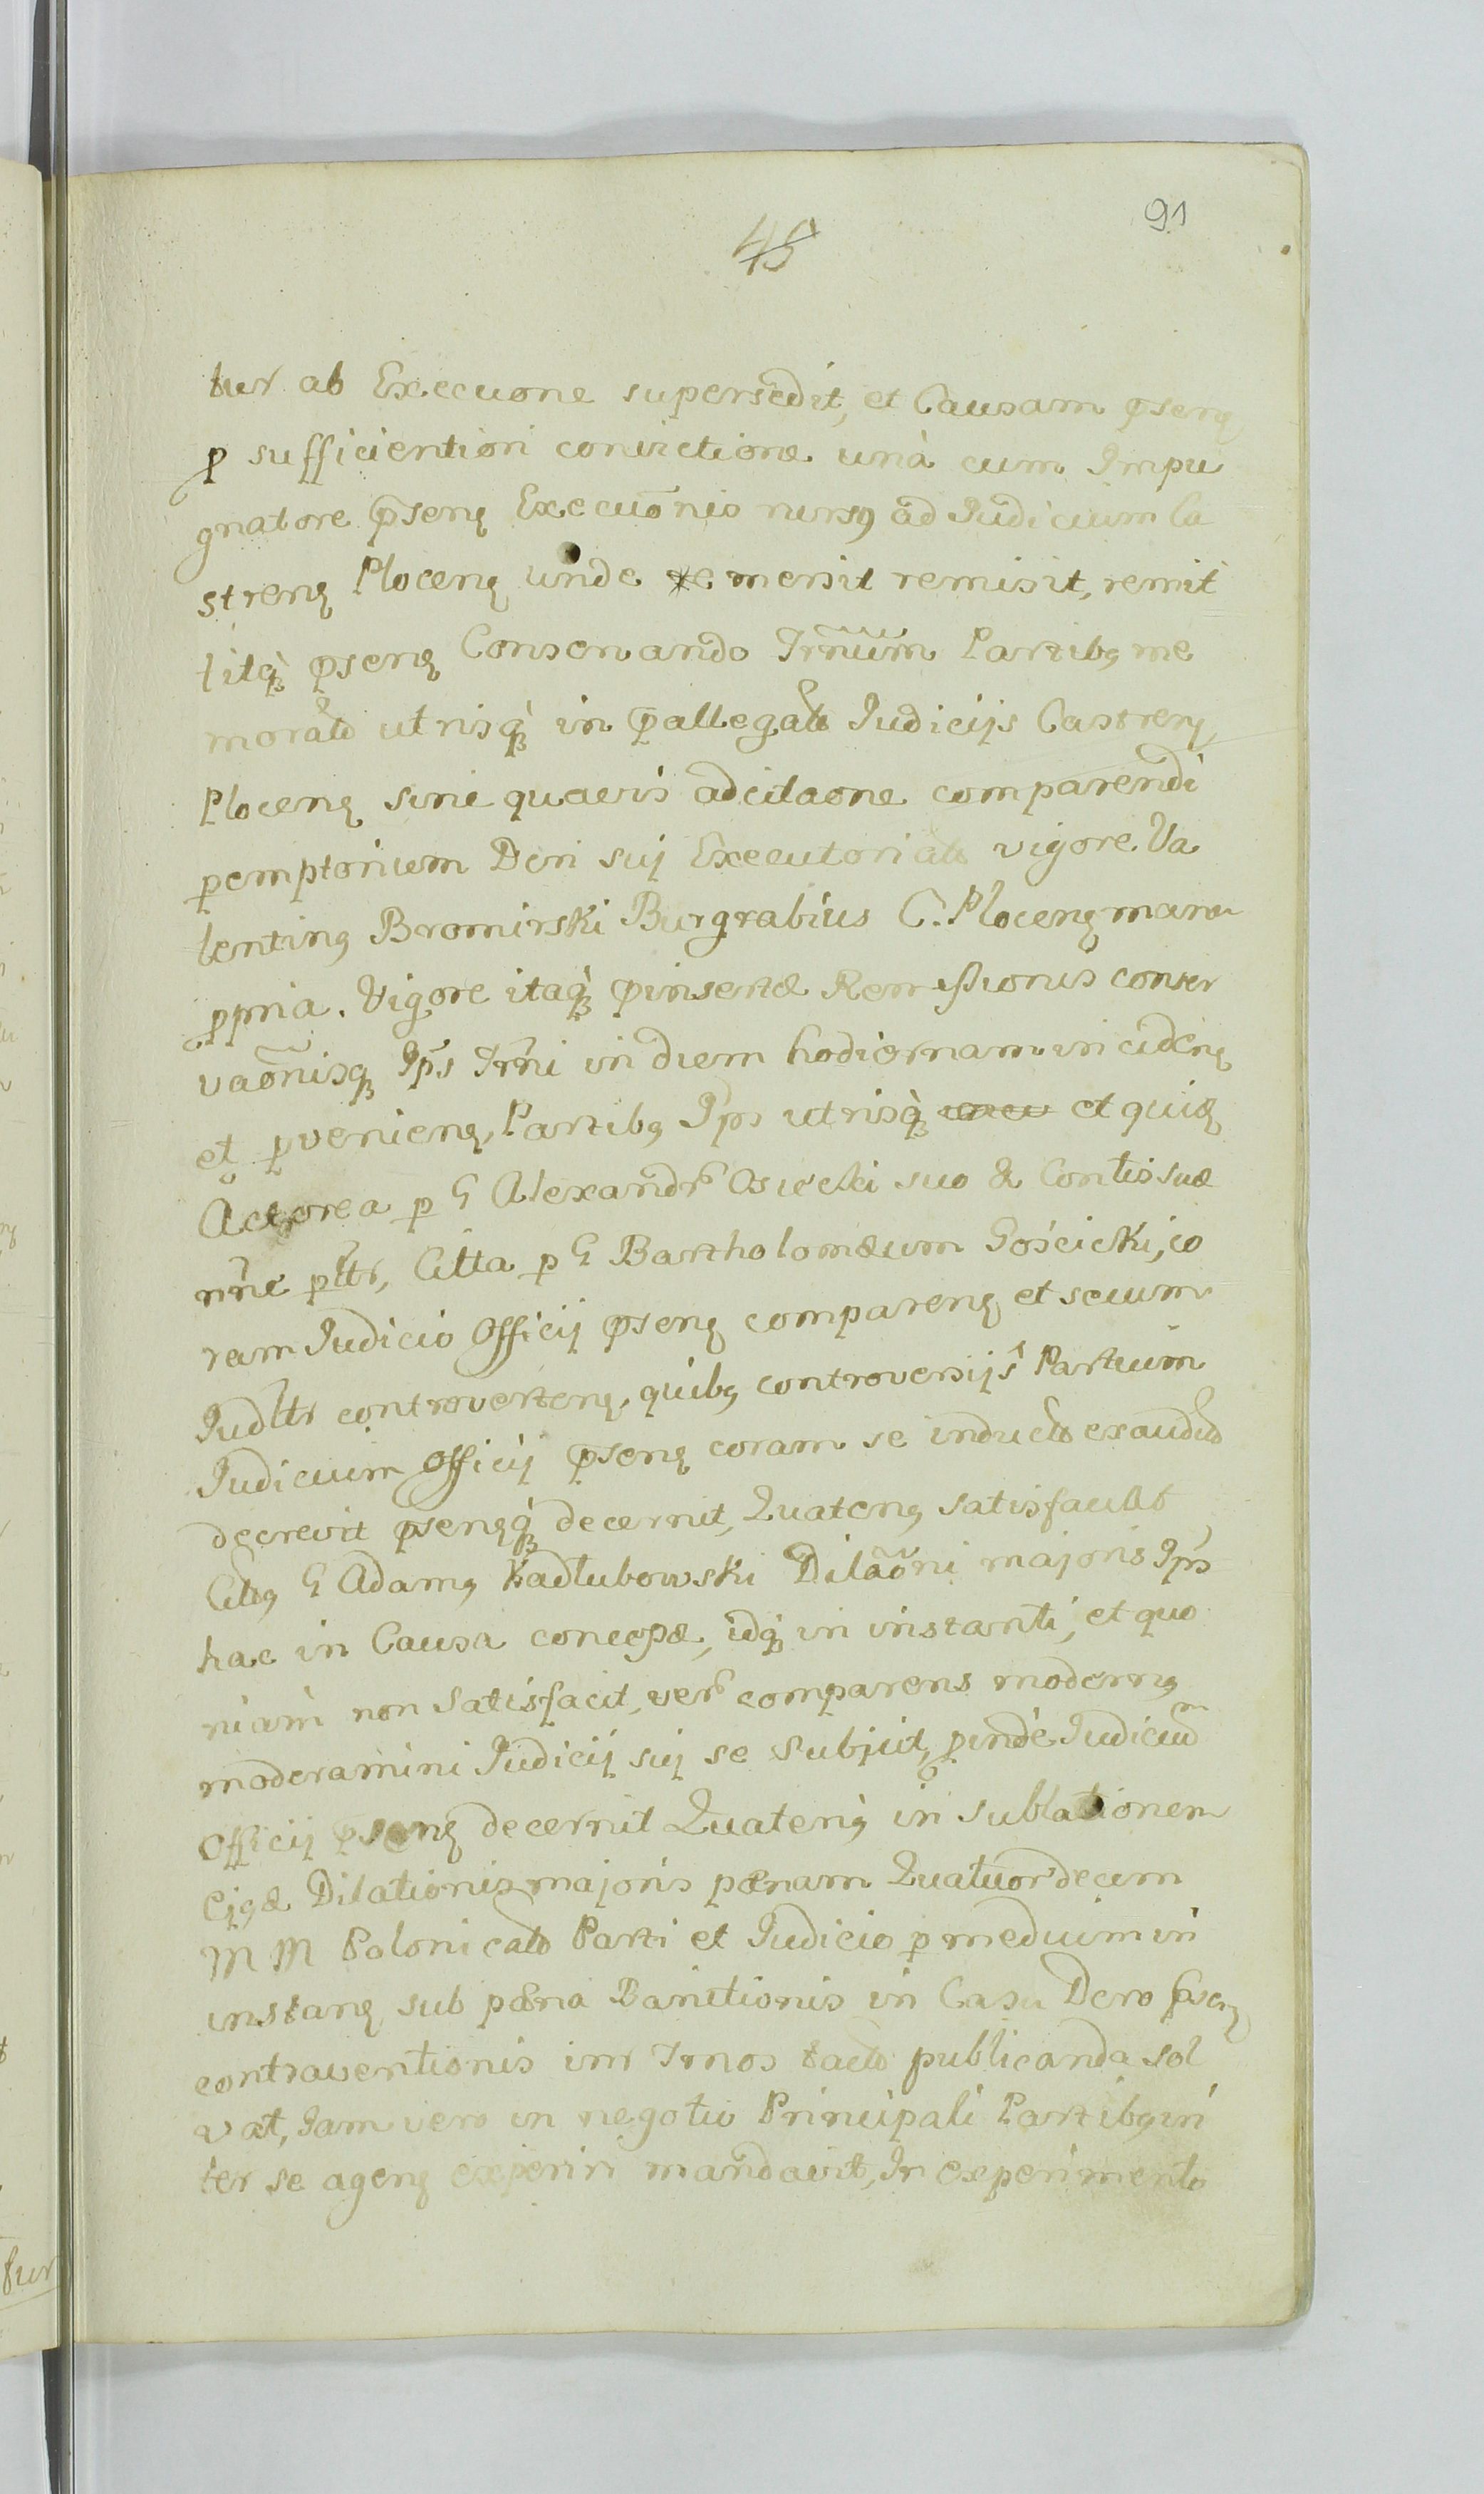 91
45
tur ab Execuone supersedit, et Causam pseng
p sufficientiori convictione unà cum Impu
gnatore pseng Execuonis rursg ad Judicium Ca
streng Ploceng unde emersit remisit, remit
titq pseng Conservando Trnum Partibg me
morats utrisq in pallegats Judicijs Castreng
Ploceng sine quavis adcitaone comparendi
pemptorium Dcri sui Executorials vigore. Va
lenting Bromirski Burgrabius C. Ploceng manu
ppria. Vigore itaq pinsertæ Remissionis conser
vaonisq Ips Trni in diem hodiernam incideng
et pvenieng, Partibg Ips utrisq et quid
Actorea p G Alexandr Osiecki suo & Contis suæ
nne pttr, Citta p G Bartholomæum Gościcki, co
ram Judicio Officij pseng compareng et secum
Judttr controverteng, quibg controversijs Partium
Judicium Officij pseng coram se inducts exaudits
decrevit psengq decernit, Quateng satisfaciat
Citg G Adamg Kadłubowski Dilaoni majoris Ips
hac in Causa conceptæ, idq in instanti, et quo
niam non satisfacit, ver comparens moderng
moderamini Judicij sui se subjicit, pinde Judicium
Officij pseng decernit Quateng in sublationem
Ejgd Dilationis majoris pænam Quatuordecim
M M Polonicats Parti et Judicio p medium in
instang sub pæna Banitionis in Casu Dcro pseng
contraventionis intr Trnos tacts publicanda sol
vat, Jam vero in negotio Principali Partibg in
ter se ageng experiri mandavit, In experimento